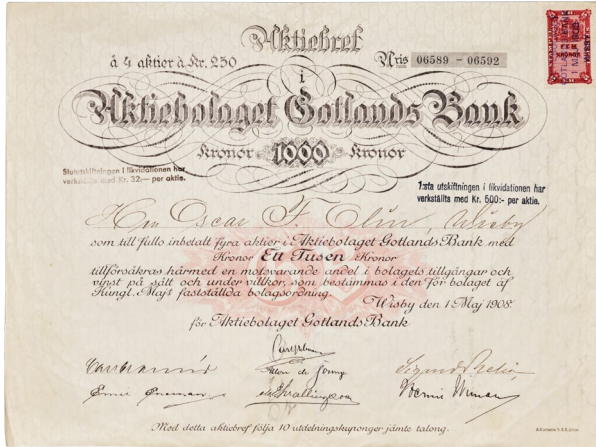 Aktiebref
å 4 aktier à Kr. 250
Nris 06589 - 06592
i
Aktiebolaget Gotlands Bank
Kronor 1000 Kronor
Slututskiftningen i likvidationen har
verkställts med Kr. 32:— per aktie.
1:sta utskiftningen i likvidationen har
verkställts med Kr. 500:- per aktie.
Herr Oscar F. Olin, Wisby
som till fullo inbetalt fyra aktier i Aktiebolaget Gotlands Bank med
Kronor Ett Tusen Kronor
tillförsäkras härmed en motsvarande andel i bolagets tillgångar och
vinst på sätt och under villkor, som bestämmas i den för bolaget af
Kungl. Maj:t fastställda bolagsordning.
Wisby den 1 Maj 1908.
för Aktiebolaget Gotlands Bank
Med detta aktiebref följa 10 utdelningskuponger jämte talong.